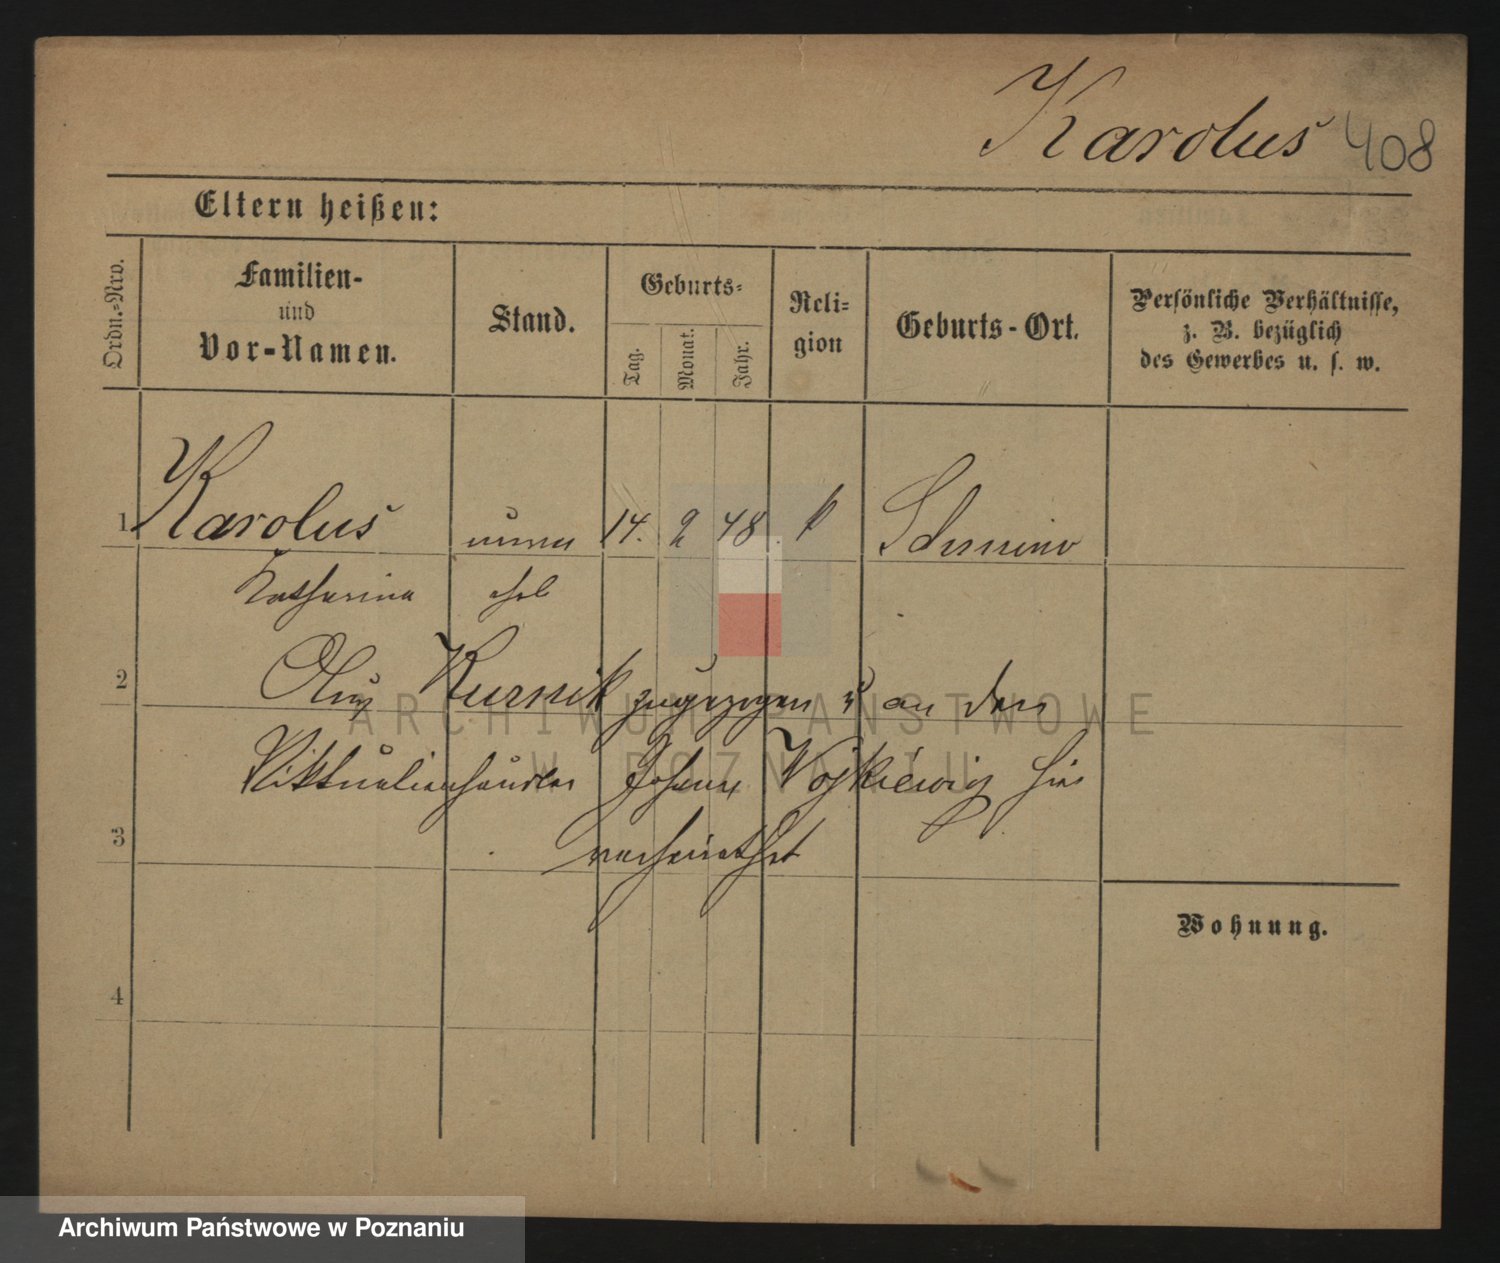 Karolus 408
Eltern heißen:
Ordn.-Nro.
Familien-
und
Vor-Namen.
Stand.
Geburts-
Tag.
Monat.
Jahr.
Reli-
gion
Geburts-Ort.
Persönliche Verhältnisse,
z. B. bezüglich
des Gewerbes u. s. w.
1 Karolus 14. 2 48 k
Katharina
2 Aus Kurnik zugezogen u an den
Viktualienhändler Johann Wojkiewicz hier
3 verheirathet
Wohnung.
4
ARCHIWUM PAŃSTWOWE
W POZNANIU
Archiwum Państwowe w Poznaniu